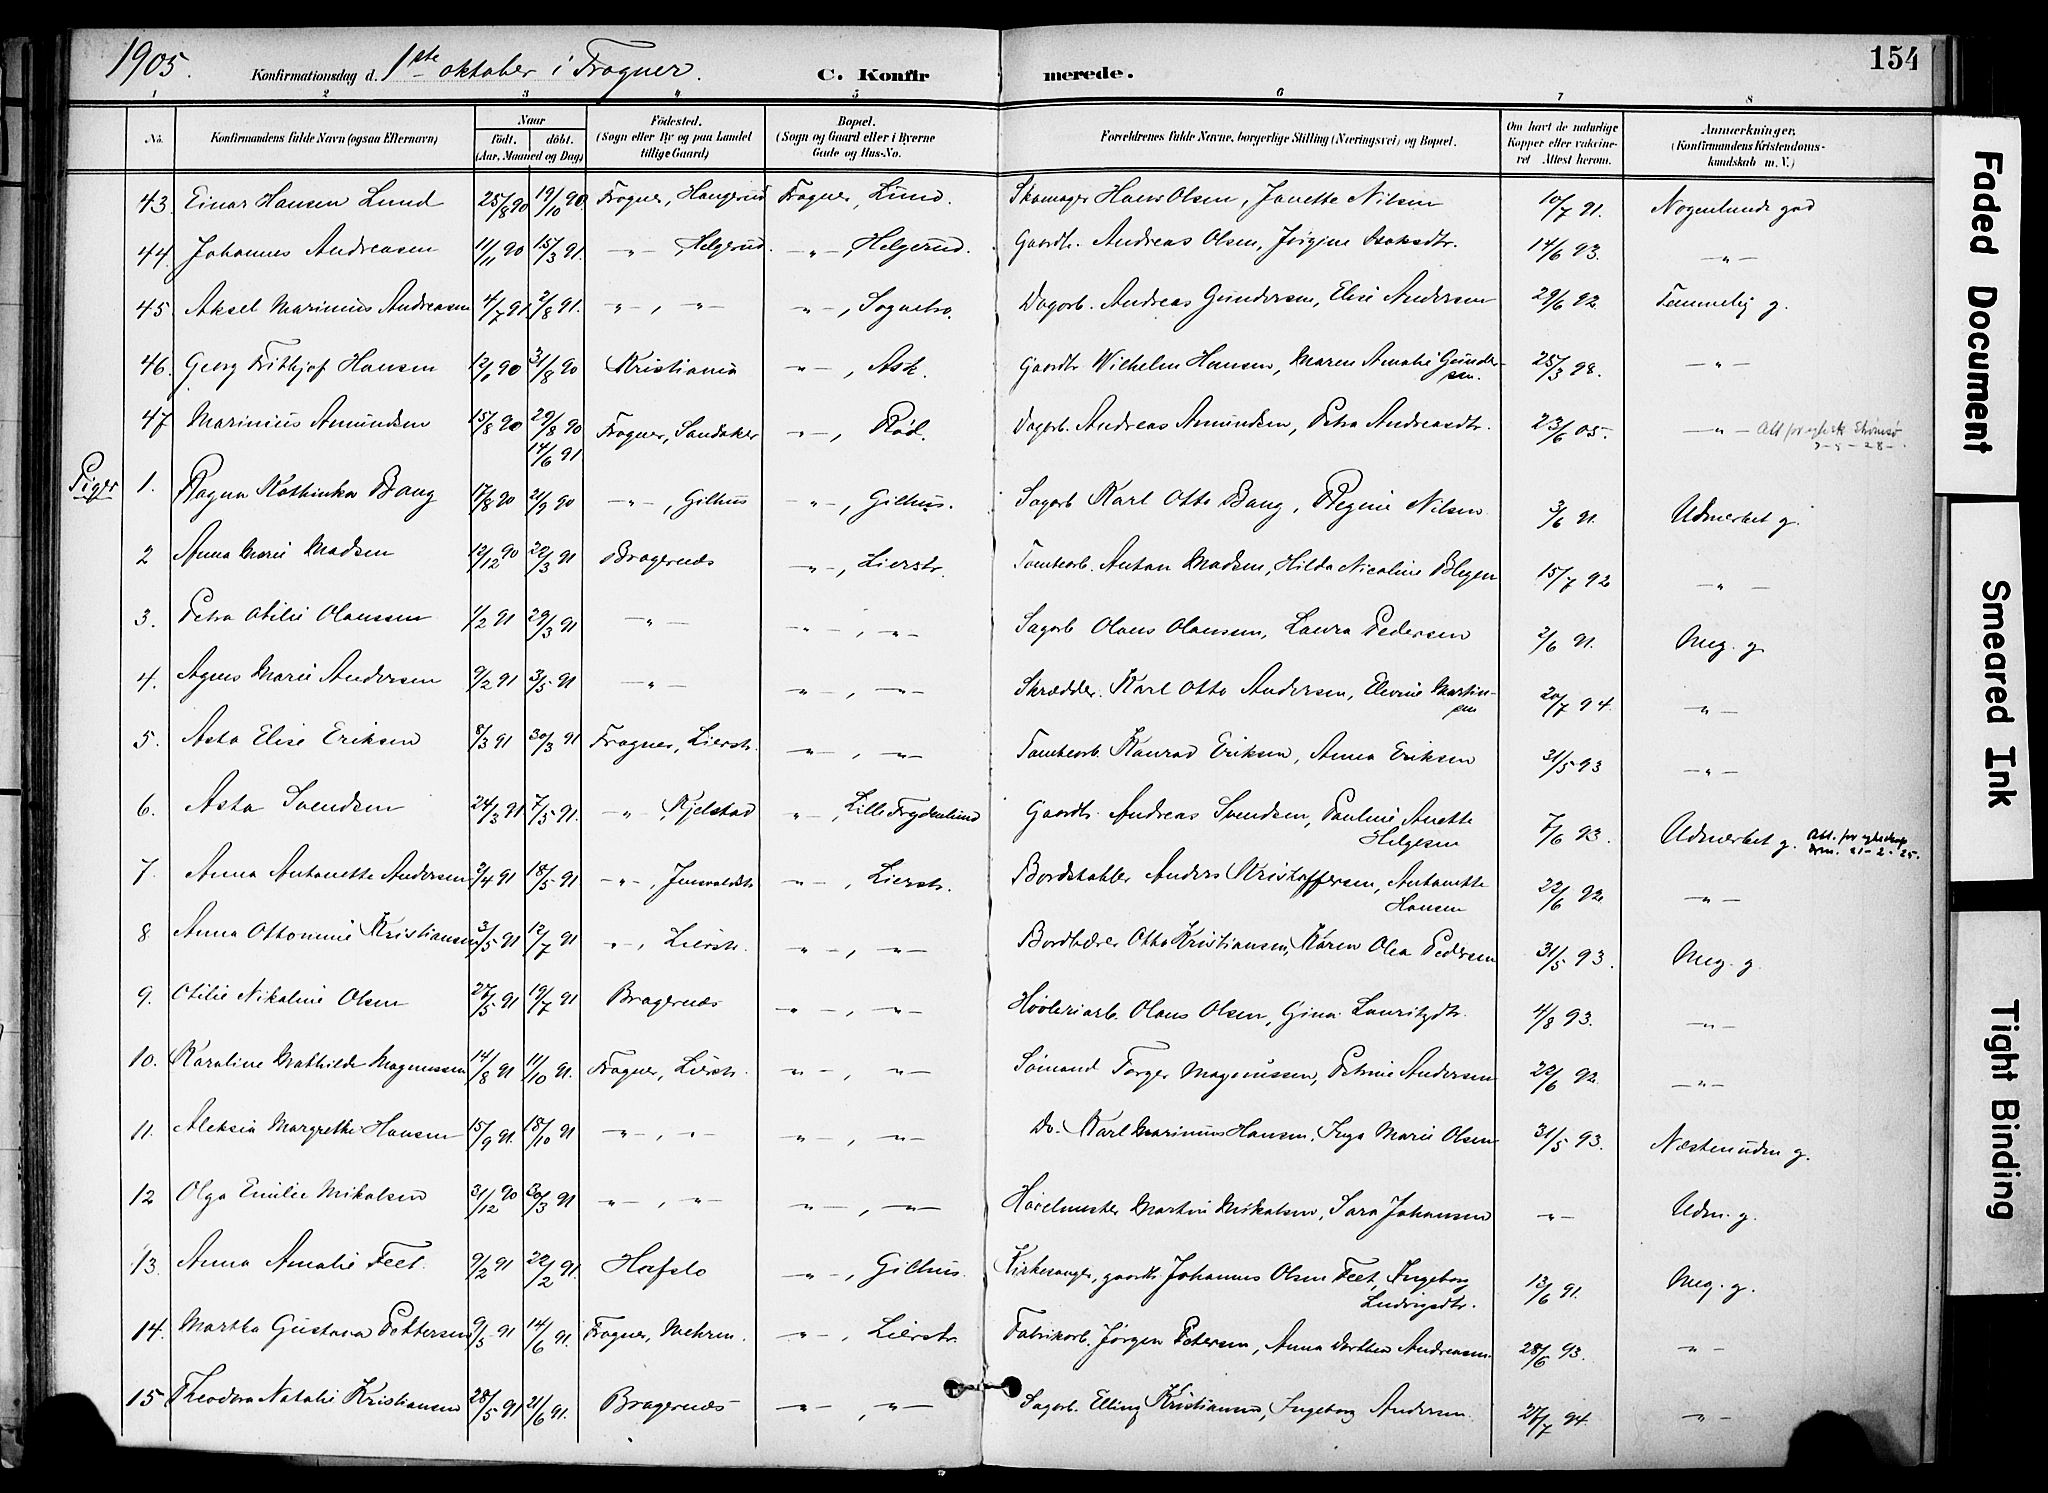 1905. Konfirmationsdag d. 1ste oktober i Frogner. C. Konfir merede. 154
1 2 3 4 5 6 7 8
No. Konfirmandens fulde Navn (ogsaa Efternavn) Naar født. døbt. (Aar, Maaned og Dag) Födested. (Sogn eller By og paa Landet tillige Gaard) Bopæl. (Sogn og Gaard eller i Byerne Gade og Hus-No. Forældrenes fulde Navne, borgerlige Stilling (Næringsvei) og Bopæl. Om havt de naturlige Kopper eller vakcineret Attest herom. Anmærkninger, (Konfirmandens Kristendomskundskab m. V.)
43. Einar Hansen Lund 25/8 90 19/10 90. Frogner, Haugerud Frogner, Lund. Skomager Hans Olsen, Janette Nilsen 10/7 91. Nogenlunde god
44. Johannes Andreasen 11/11 90 15/3 91. -"-, Helgerud. -"-, Helgerud. Gaardbr. Andreas Olsen, Jørgine Isaksdtr. 14/6 93. -"-
45. Aksel Marinius Andreasen 4/7 91 2/8 91. -"-, -"- -"-, Sognebro. Dagarb. Andreas Gundersen, Elise Andersen 29/6 92 Temmelig g.
46. Georg Frithjof Hansen 31/8 90 Kristiania -"-, Ask. Gaardbr. Wilhelm Hansen, Maren Amalie Gundersen. 25/3 98. -"-
47 Marinius Amundsen 15/8 90 29/8 90 14/6 91 Frogner, Sandaker -"-, Rød. Dagarb. Andreas Amundsen, Petra Andreasdtr. 23/6 05. -"-
Piger 1. Ragna Kathinka Bang 17/8 90 21/9 90 -"-, Gilhus -"-, Gilhus. Sagarb. Karl Otto Bang, Regine Nilsen 3/6 91. Udmerket g.
2 Anna Marie Madsen 12/12 90 22/3 91 Bragernæs -"-, Lierstr. Tomtearb. Anton Madsen, Hilda Nicoline Blegen 15/7 92 -"-
3. Petra Otilie Olaussen 1/2 91 29/3 91 -"- -"-, -"- Sagarb. Olaus Olaussen, Laura Pedersen 2/6 91. Meg. g.
4. Agnes Marie Andersen 9/2 91 3/5 91 -"- -"-, -"- Skrædder. Karl Otto Andersen, Elevine Martinsen 20/7 94. -"-
5. Asta Elise Eriksen 8/3 91 30/3 91 Frogner, Lierstr. -"-, -"- Tomtearb. Konrad Eriksen, Anna Eriksen 31/5 93 -"-
6. Asta Svendsen 24/3 91 7/5 91. -"-, Kjelstad -"-, Lille Frydenlund Gaardbr. Andreas Svendsen, Pauline Anette Helgesen 7/6 93. Udmerket g.
7. Anna Antonette Andersen 2/4 91 18/5 91 -"-, -"-, Lierstr. Bordstabler Anders Kristoffersen, Antonette Hansen 22/6 92 -"-
8 Anna Ottomine Kristiansen 3/5 91 12/7 91 -"-, Lierstr. -"-, -"- Bordbærer Otto Kristiansen, Karen Olea Pedersen 31/5 93. Meg. g.
9. Otilie Nikoline Olsen 27/5 91 19/7 91 Bragernæs -"-, -"- Høvleriarb. Olaus Olsen, Gina Lauritzdtr. 4/8 93. -"-
10. Karoline Mathilde Magnussen 14/8 91 11/10 91. Frogner, Lierstr. -"-, -"- Sømand Torger Magnussen, Petrine Andersen 22/6 92. -"-
11. Aleksia Margrethe Hansen 15/9 91. 18/10 91 -"-, -"- -"-, -"- Do. Karl Marinius Hansen, Inga Marie Olsen 31/5 93. Næsten udm g.
12 Olga Emilie Mikalsen 31/12 90 30/3 91 -"-, -"- -"-, -"- Høvelmester Martin Mikalsen, Sara Johansen -"- Udm. g.
13. Anna Amalie Feet 9/2 91 22/2 91. Hafslo -"-, Gilhus. Kirkesanger, gaardb. Johannes Olsen Feet, Ingeborg Ludvigsdtr. 13/6 91. Meg. g.
14. Martha Gustava Pettersen 9/5 91 14/6 91. Frogner, Mehren. -"-, Lierstr. Fabrikarb. Jørgen Petersen, Anna Dorthea Andreasen. 28/6 93. -"-
15 Theodora Natalie Kristiansen 28/5 91 21/6 91. Bragernæs -"-, -"- Sagarb. Elling Kristiansen, Ingeborg Andersen. 27/7 94. -"-
Faded Document
Smeared Ink
Tight Binding